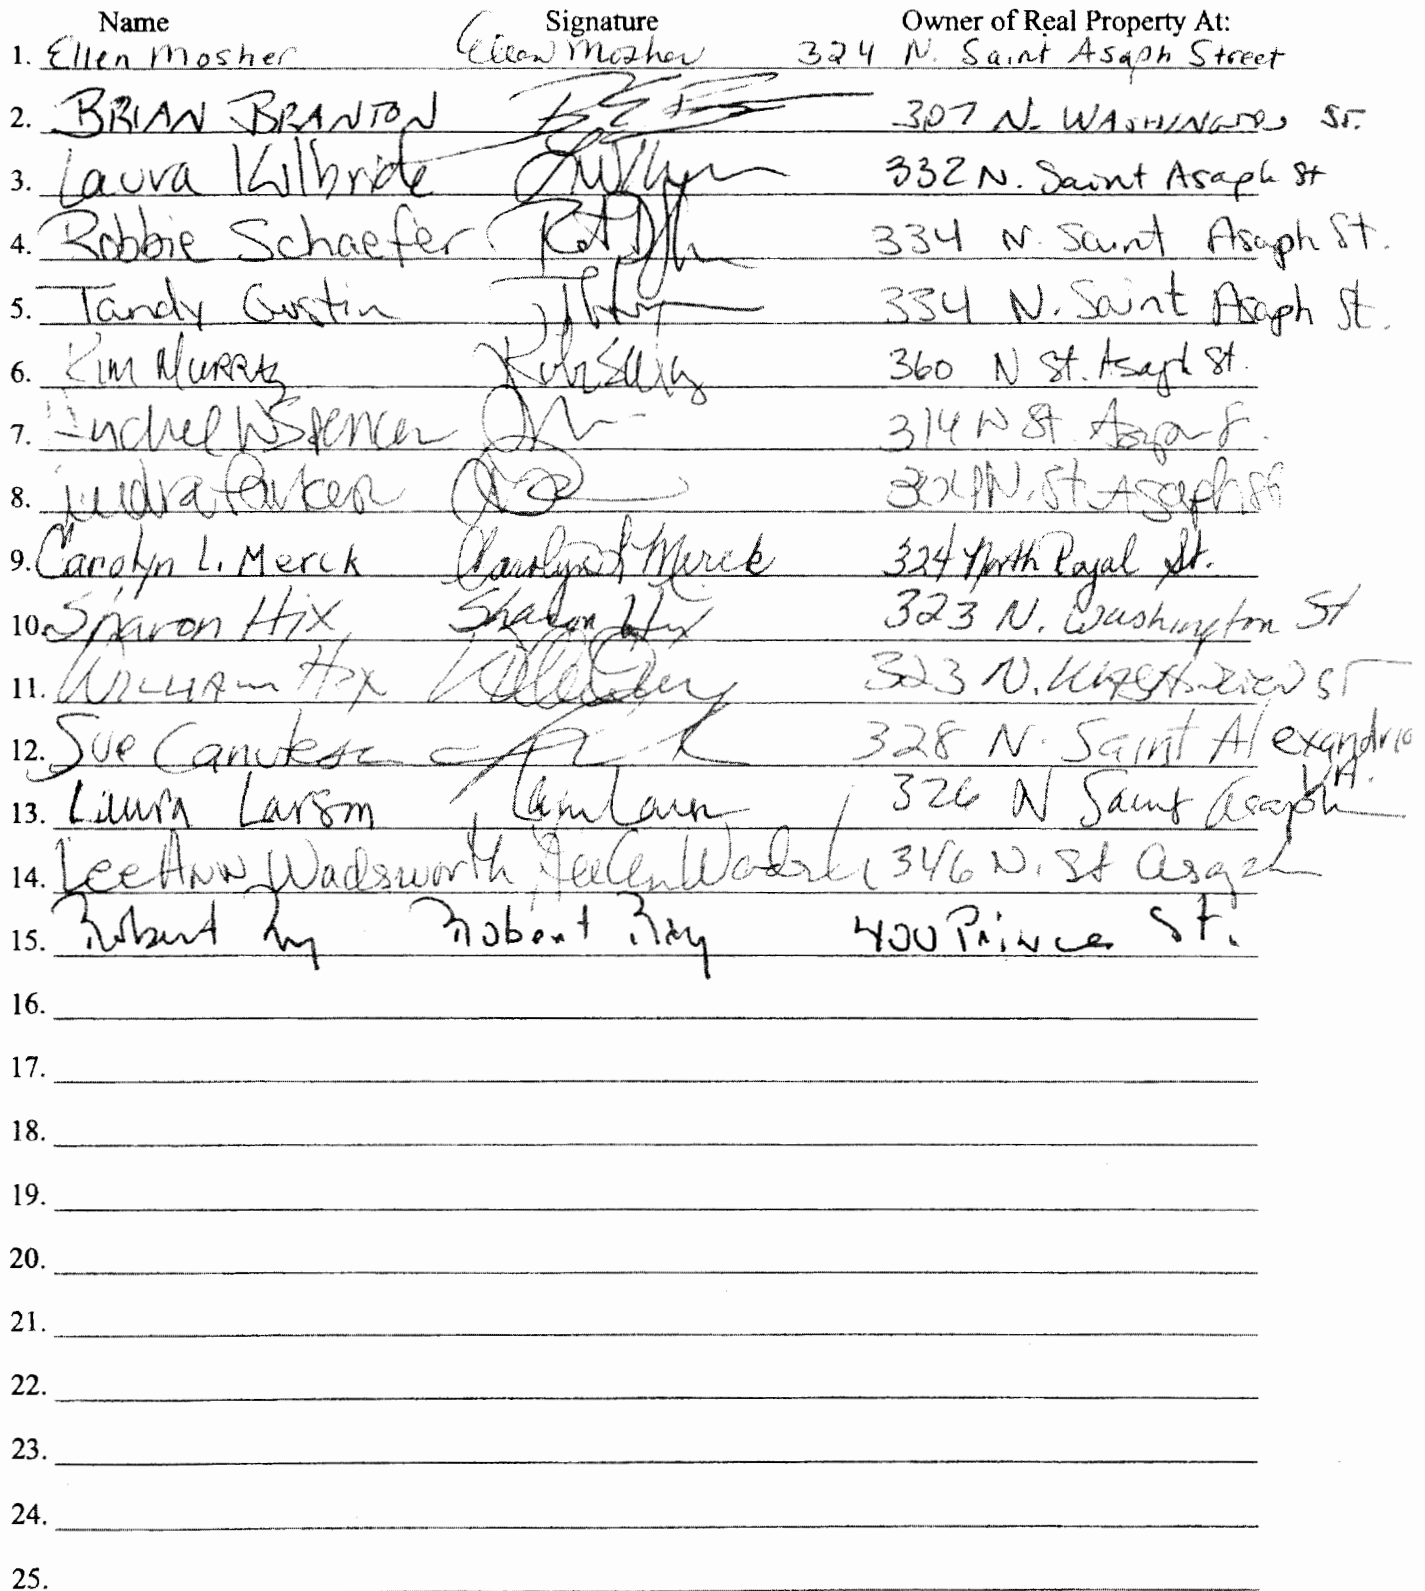 Name Signature Owner of Real Property At:
1. Ellen Mosher Ellen Mosher 324 N. Saint Asaph Street
2. BRIAN BRANTON 307 N. WASHINGTON ST.
3. Laura Kilbride 332 N. Saint Asaph St
4. Robbie Schaefer 334 N. Saint Asaph St.
5. Tandy Gustin 334 N. Saint Asaph St.
6. KIM MURRAY 360 N St. Asaph St.
7. Spencer 314 N St.
8. Parker N. St. Asaph St
9. Carolyn L. Merck Carolyn L Merck 324 North Royal St.
10. Sharon Hix Sharon Hix 323 N. Washington St
11. WILLIAM Hix 323 N. ST
12. Sue 328 N. Saint Alexandria
VA.
13. Laura Larson 326 N Saint Asaph
14. LeeAnn Wadsworth LeeAnn 346 N. St Asaph
15. Robert Ray Robert Ray 400 Prince St.
16.
17.
18.
19.
20.
21.
22.
23.
24.
25.